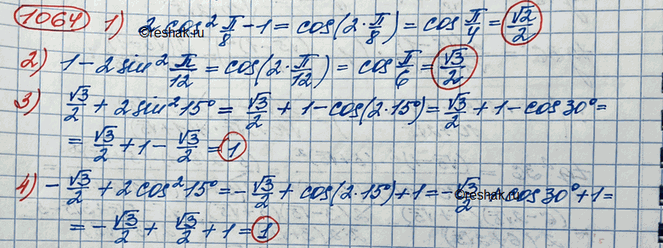 1064 1) 2cos² π/8 - 1 = cos(2·π/8) = cos π/4 = √2/2
2) 1 - 2 sin² π/12 = cos(2·π/12) = cos π/6 = √3/2
3) √3/2 + 2 sin² 15° = √3/2 + 1 - cos(2·15°) = √3/2 + 1 - cos 30° =
= √3/2 + 1 - √3/2 = 1
4) -√3/2 + 2 cos² 15° = -√3/2 + cos(2·15°) + 1 = -√3/2 + cos 30° + 1 =
= -√3/2 + √3/2 + 1 = 1